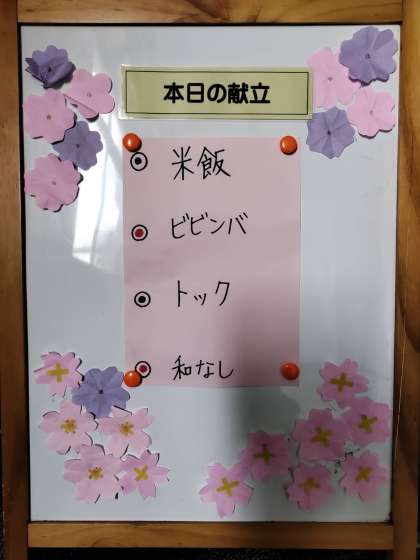 本日の献立
米飯
ビビンバ
トック
和なし